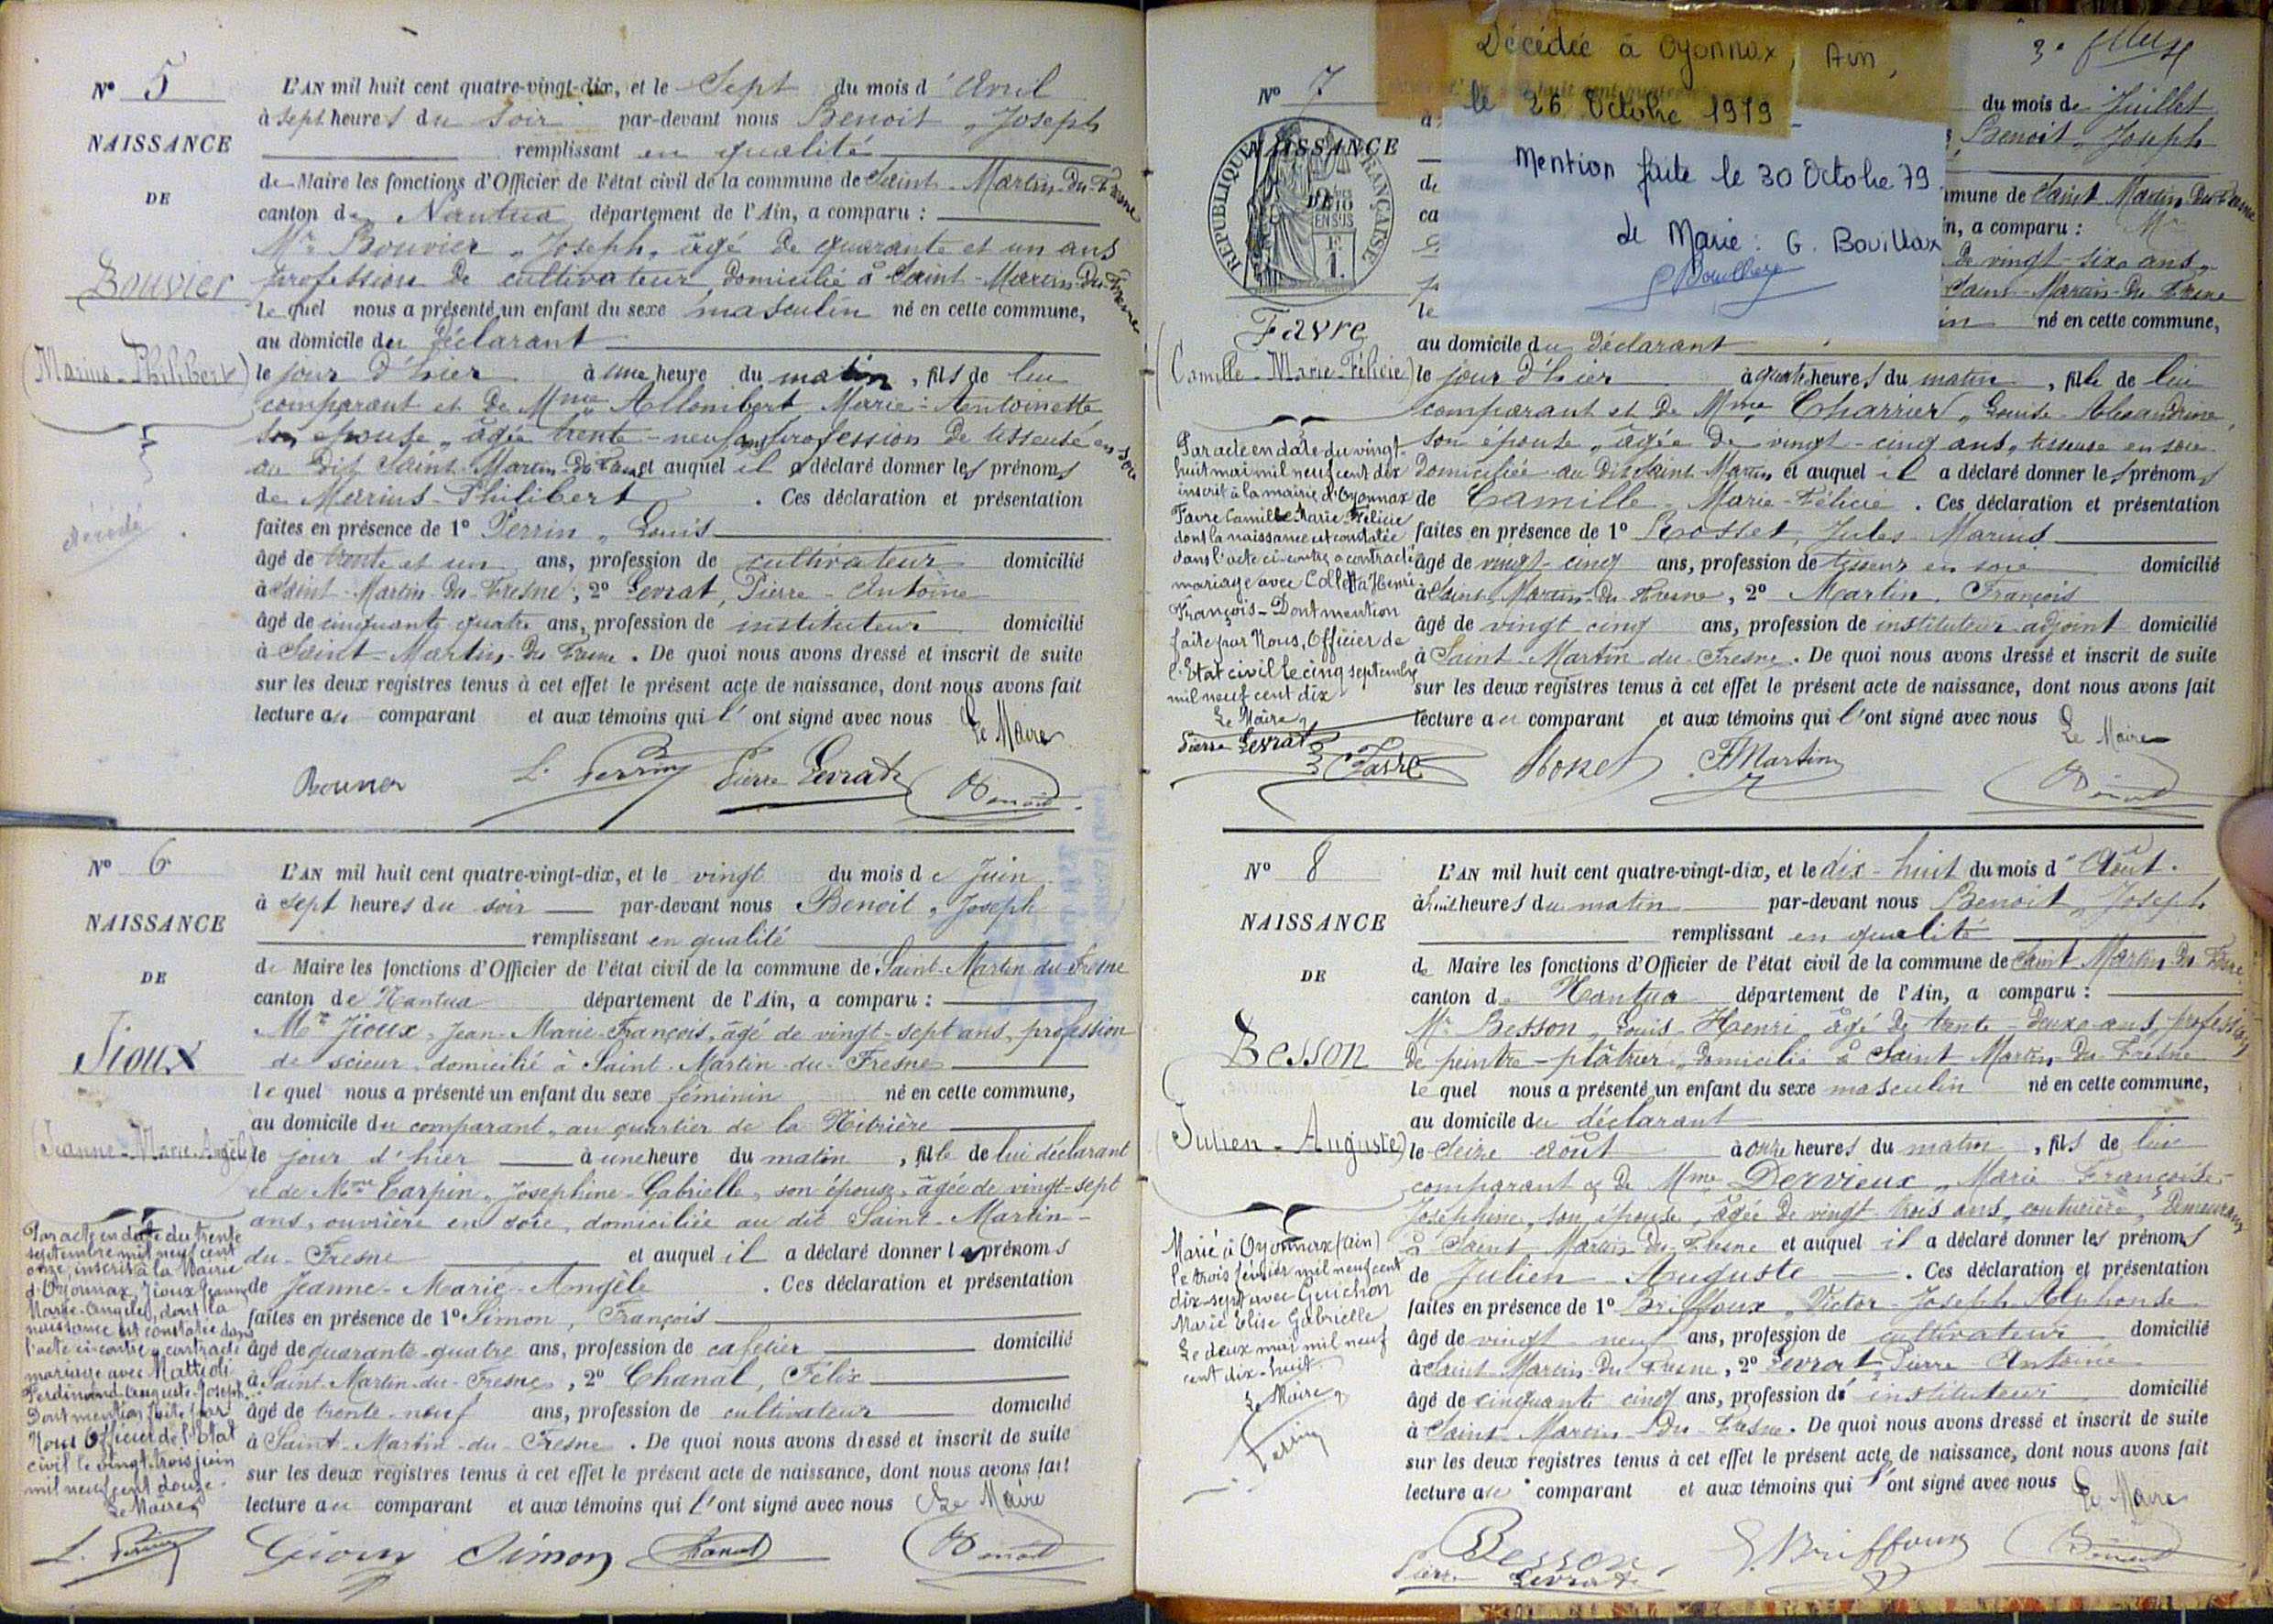 N° 5
NAISSANCE
DE
Bouvier
(Marius-Philibert)
décédé
L'AN mil huit cent quatre-vingt-dix, et le Sept du mois d'Avril
à sept heures du soir par-devant nous Benoit, Joseph
remplissant en qualité
de Maire les fonctions d'Officier de l'état civil de la commune de Saint-Martin-du-Fresne
canton de Nantua département de l'Ain, a comparu :
Mr Bouvier, Joseph, âgé de quarante et un ans
profession de cultivateur, domicilié à Saint-Martin-du-Fresne
le quel nous a présenté un enfant du sexe masculin né en cette commune,
au domicile du déclarant
le jour d'hier à une heure du matin, fils de lui
comparant et de Mme Allombert Marie-Antoinette
son épouse, âgée trente-neuf ans profession de tisseuse en soie
au dit Saint-Martin-du-Fresne et auquel il a déclaré donner les prénoms
de Marius-Philibert. Ces déclaration et présentation
faites en présence de 1° Perrin, Louis
âgé de trente et un ans, profession de cultivateur domicilié
à Saint-Martin-du-Fresne, 2° Levrat, Pierre-Antoine
âgé de cinquante quatre ans, profession de instituteur domicilié
à Saint-Martin-du-Fresne. De quoi nous avons dressé et inscrit de suite
sur les deux registres tenus à cet effet le présent acte de naissance, dont nous avons fait
lecture au comparant et aux témoins qui l'ont signé avec nous Le Maire
Bouvier L. Perrin Pierre Levrat Benoit
N° 6
NAISSANCE
DE
Jioux
(Jeanne-Marie-Angèle)
Par acte en date du trente
septembre mil neuf cent
onze, inscrit à la Mairie
d'Oyonnax, Jioux Jeanne
Marie-Angèle, dont la
naissance est constatée dans
l'acte ci-contre a contracté
mariage avec Mattioli
Ferdinand Auguste Joseph.
Dont mention faite par
Nous Officier de l'Etat
civil le vingt trois juin
mil neuf cent douze.
Le Maire
L. Perrin
L'AN mil huit cent quatre-vingt-dix, et le vingt du mois de Juin
à sept heures du soir par-devant nous Benoit, Joseph
remplissant en qualité
de Maire les fonctions d'Officier de l'état civil de la commune de Saint-Martin-du-Fresne
canton de Nantua département de l'Ain, a comparu :
Mr Jioux, Jean-Marie-François, âgé de vingt-sept ans, profession
de scieur, domicilié à Saint-Martin-du-Fresne
le quel nous a présenté un enfant du sexe féminin né en cette commune,
au domicile du comparant, au quartier de la
le jour d'hier à une heure du matin, fille de lui déclarant
et de Mme Carpin, Josephine-Gabrielle, son épouse, âgée de vingt-sept
ans, ouvrière en soie, domiciliée au dit Saint-Martin-
du-Fresne et auquel il a déclaré donner les prénoms
de Jeanne-Marie-Angèle. Ces déclaration et présentation
faites en présence de 1° Simon, François
âgé de quarante-quatre ans, profession de cafetier domicilié
à Saint-Martin-du-Fresne, 2° Chanal, Félix
âgé de trente-neuf ans, profession de cultivateur domicilié
à Saint-Martin-du-Fresne. De quoi nous avons dressé et inscrit de suite
sur les deux registres tenus à cet effet le présent acte de naissance, dont nous avons fait
lecture au comparant et aux témoins qui l'ont signé avec nous Le Maire
Simon Chanal Benoit
Décédée à Oyonnax, Ain,
le 26 Octobre 1979
Mention faite le 30 Octobre 79
G. Bouillax
N° 7
NAISSANCE
DE
RÉPUBLIQUE FRANÇAISE
Favre
(Camille-Marie-Félicie)
Par acte en date du vingt-
huit mai mil neuf cent dix
inscrit à la mairie d'Oyonnax
Favre Camille Marie Félicie
dont la naissance est constatée
dans l'acte ci-contre a contracté
mariage avec Colletta Henri
François - Dont mention
faite par Nous, Officier de
l'Etat civil le cinq septembre
mil neuf cent dix
Le Maire,
Pierre Levrat
du mois de Juillet
Benoit, Joseph
mmune de Saint Martin-du-Fresne
n, a comparu : Mr
de vingt-six ans,
Saint-Martin-du-Fresne
in né en cette commune,
au domicile du déclarant
le jour d'hier à quatre heures du matin, fille de lui
comparant et de Mme Charrier, Louise-Alexandrine,
son épouse, âgée de vingt-cinq ans, tisseuse en soie
domiciliée au dit Saint Martin et auquel il a déclaré donner les prénoms
de Camille-Marie-Félicie. Ces déclaration et présentation
faites en présence de 1° Rosset, Jules-Marius
âgé de vingt-cinq ans, profession de tisseur en soie domicilié
à Saint-Martin-du-Fresne, 2° Martin, François
âgé de vingt cinq ans, profession de instituteur-adjoint domicilié
à Saint-Martin-du-Fresne. De quoi nous avons dressé et inscrit de suite
sur les deux registres tenus à cet effet le présent acte de naissance, dont nous avons fait
lecture au comparant et aux témoins qui l'ont signé avec nous Le Maire
Favre F. Martin Benoit
N° 8
NAISSANCE
DE
Besson
(Julien-Auguste)
Marié à Oyonnax (Ain)
le trois février mil neuf cent
dix-sept avec Guichon
Marie Elise Gabrielle
Le deux mai mil neuf
cent dix-huit.
Le Maire,
Perrin
L'AN mil huit cent quatre-vingt-dix, et le dix-huit du mois d'Août.
à huit heures du matin par-devant nous Benoit, Joseph
remplissant en qualité
de Maire les fonctions d'Officier de l'état civil de la commune de Saint Martin-du-Fresne
canton de Nantua département de l'Ain, a comparu :
Mr Besson, Louis-Henri, âgé de trente-deux ans, profession
de peintre-plâtrier, domicilié à Saint Martin-du-Fresne
le quel nous a présenté un enfant du sexe masculin né en cette commune,
au domicile du déclarant
le Seize Août à onze heures du matin, fils de lui
comparant & de Mme Dervieux, Marie-Françoise-
Joséphine, son épouse, âgée de vingt-trois ans, couturière, demeurant
à Saint Martin-du-Fresne et auquel il a déclaré donner les prénoms
de Julien-Auguste. Ces déclaration et présentation
faites en présence de 1° Briffoux, Victor-Joseph Alphonse
âgé de vingt neuf ans, profession de cultivateur domicilié
à Saint-Martin-du-Fresne, 2° Levrat Pierre-Antoine
âgé de cinquante cinq ans, profession de instituteur domicilié
à Saint-Martin-du-Fresne. De quoi nous avons dressé et inscrit de suite
sur les deux registres tenus à cet effet le présent acte de naissance, dont nous avons fait
lecture au comparant et aux témoins qui l'ont signé avec nous Le Maire
Besson Briffoux Benoit
Pierre Levrat